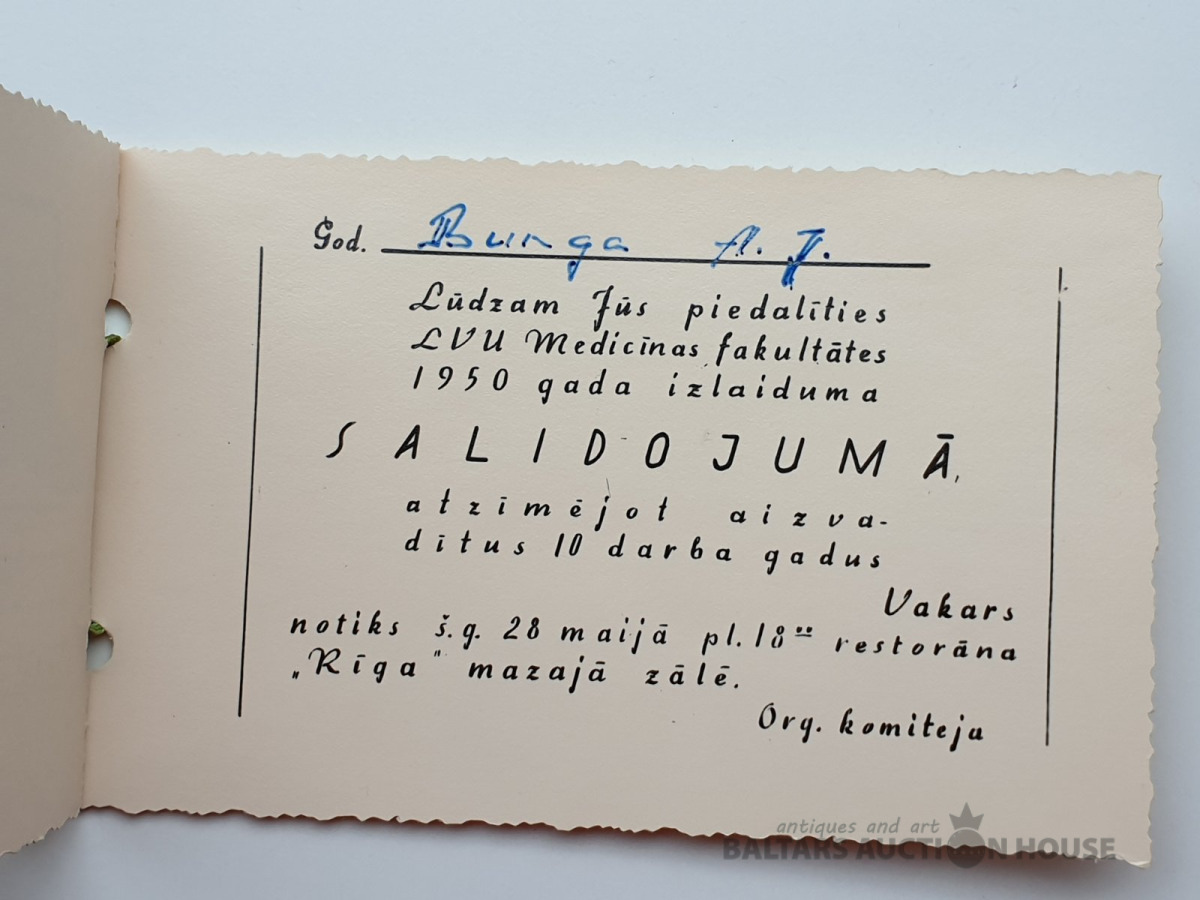 God. Bunga A. J.
Lūdzam Jūs piedalīties
LVU Medicīnas fakultātes
1950 gada izlaiduma
SALIDOJUMĀ,
atzīmējot aizva-
dītus 10 darba gadus
Vakars
notiks š.g. 28 maijā pl. 18°° restorāna
„Rīga" mazajā zālē.
Org. komiteja
antiques and art
BALTARS AUCTION HOUSE